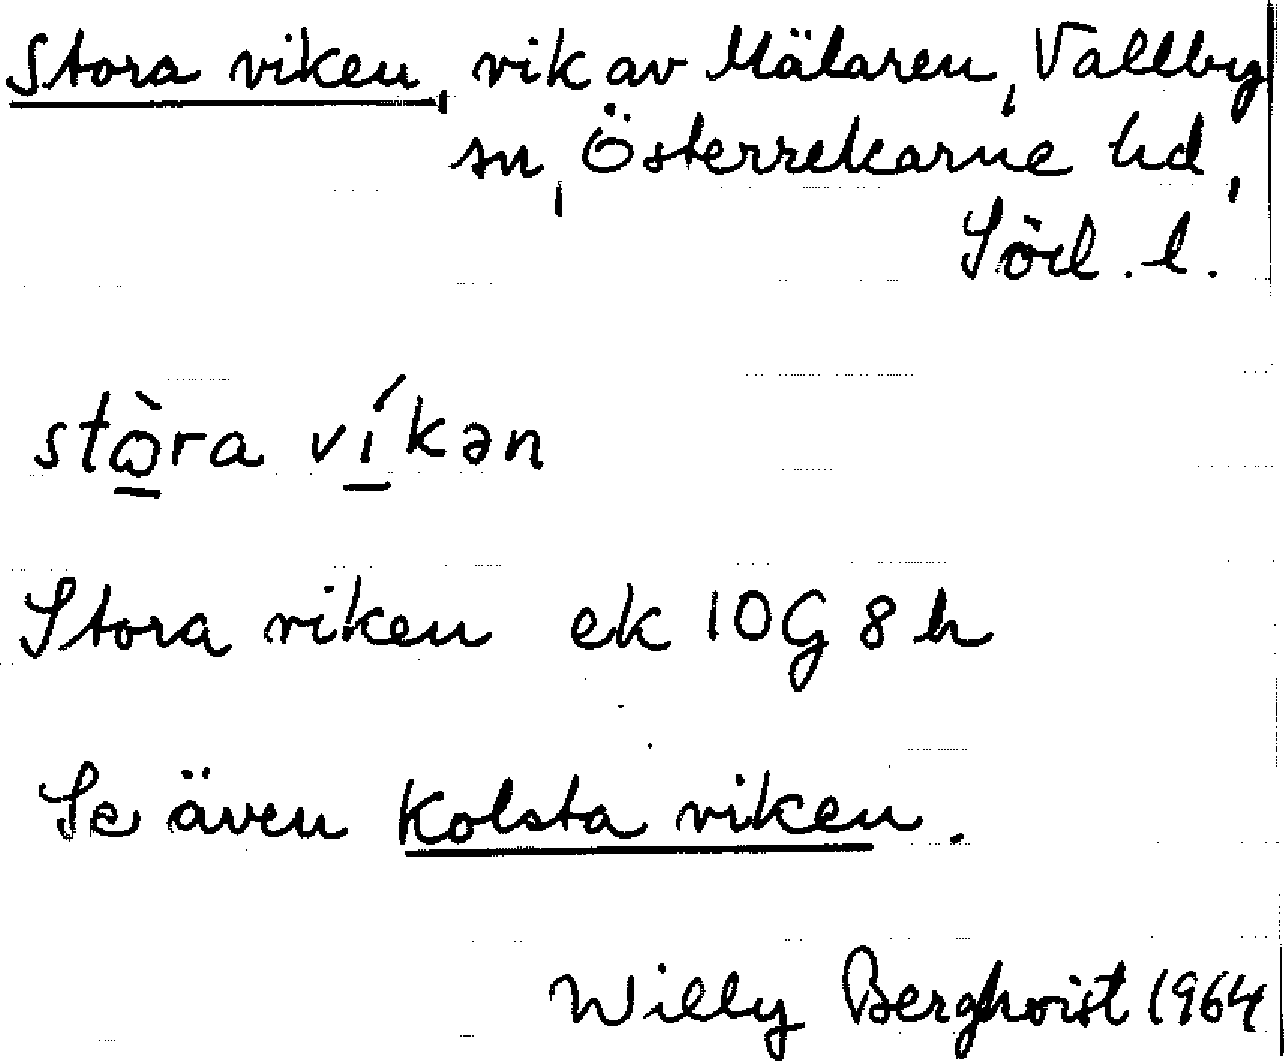 Stora viken, vik av Mälaren, Vallby
sn, Österrekarne hd,
Söd. l.
stɷ̀ra víkən
Stora viken ek 10G 8 h
Se även Kolsta viken.
Willy Berghvist 1964